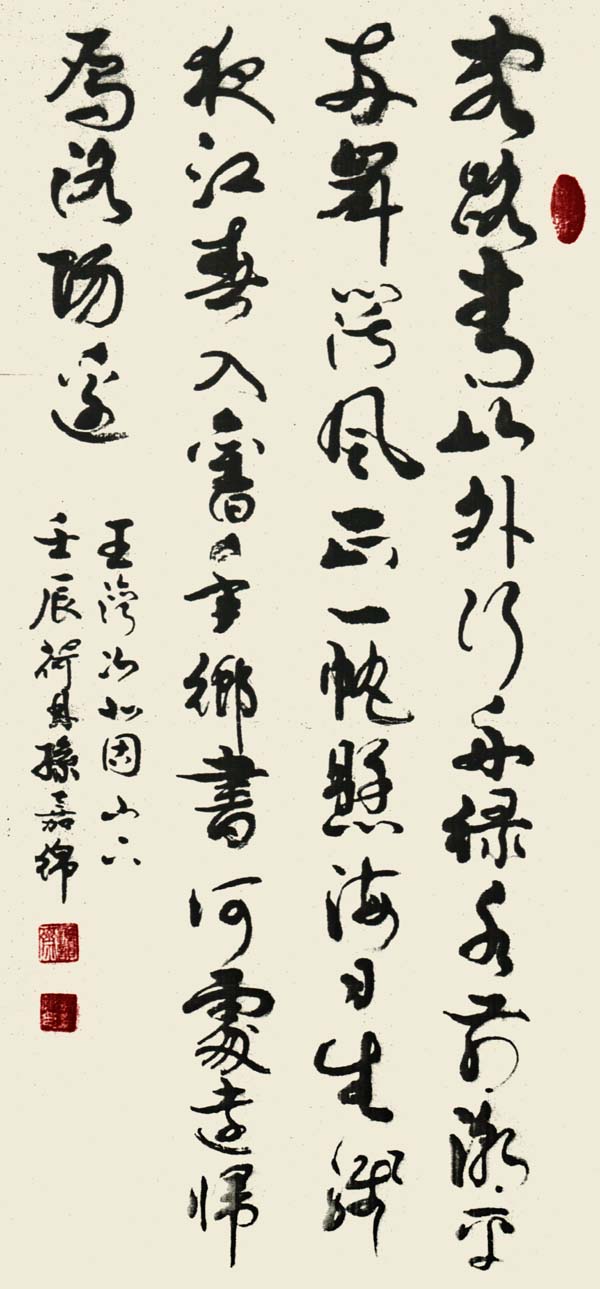 客路青山外行舟綠水前潮平
兩岸闊風正一帆懸海日生殘
夜江春入舊年鄉書何處達歸
雁洛陽邊
王灣次北固山下
壬辰荷月孫嘉